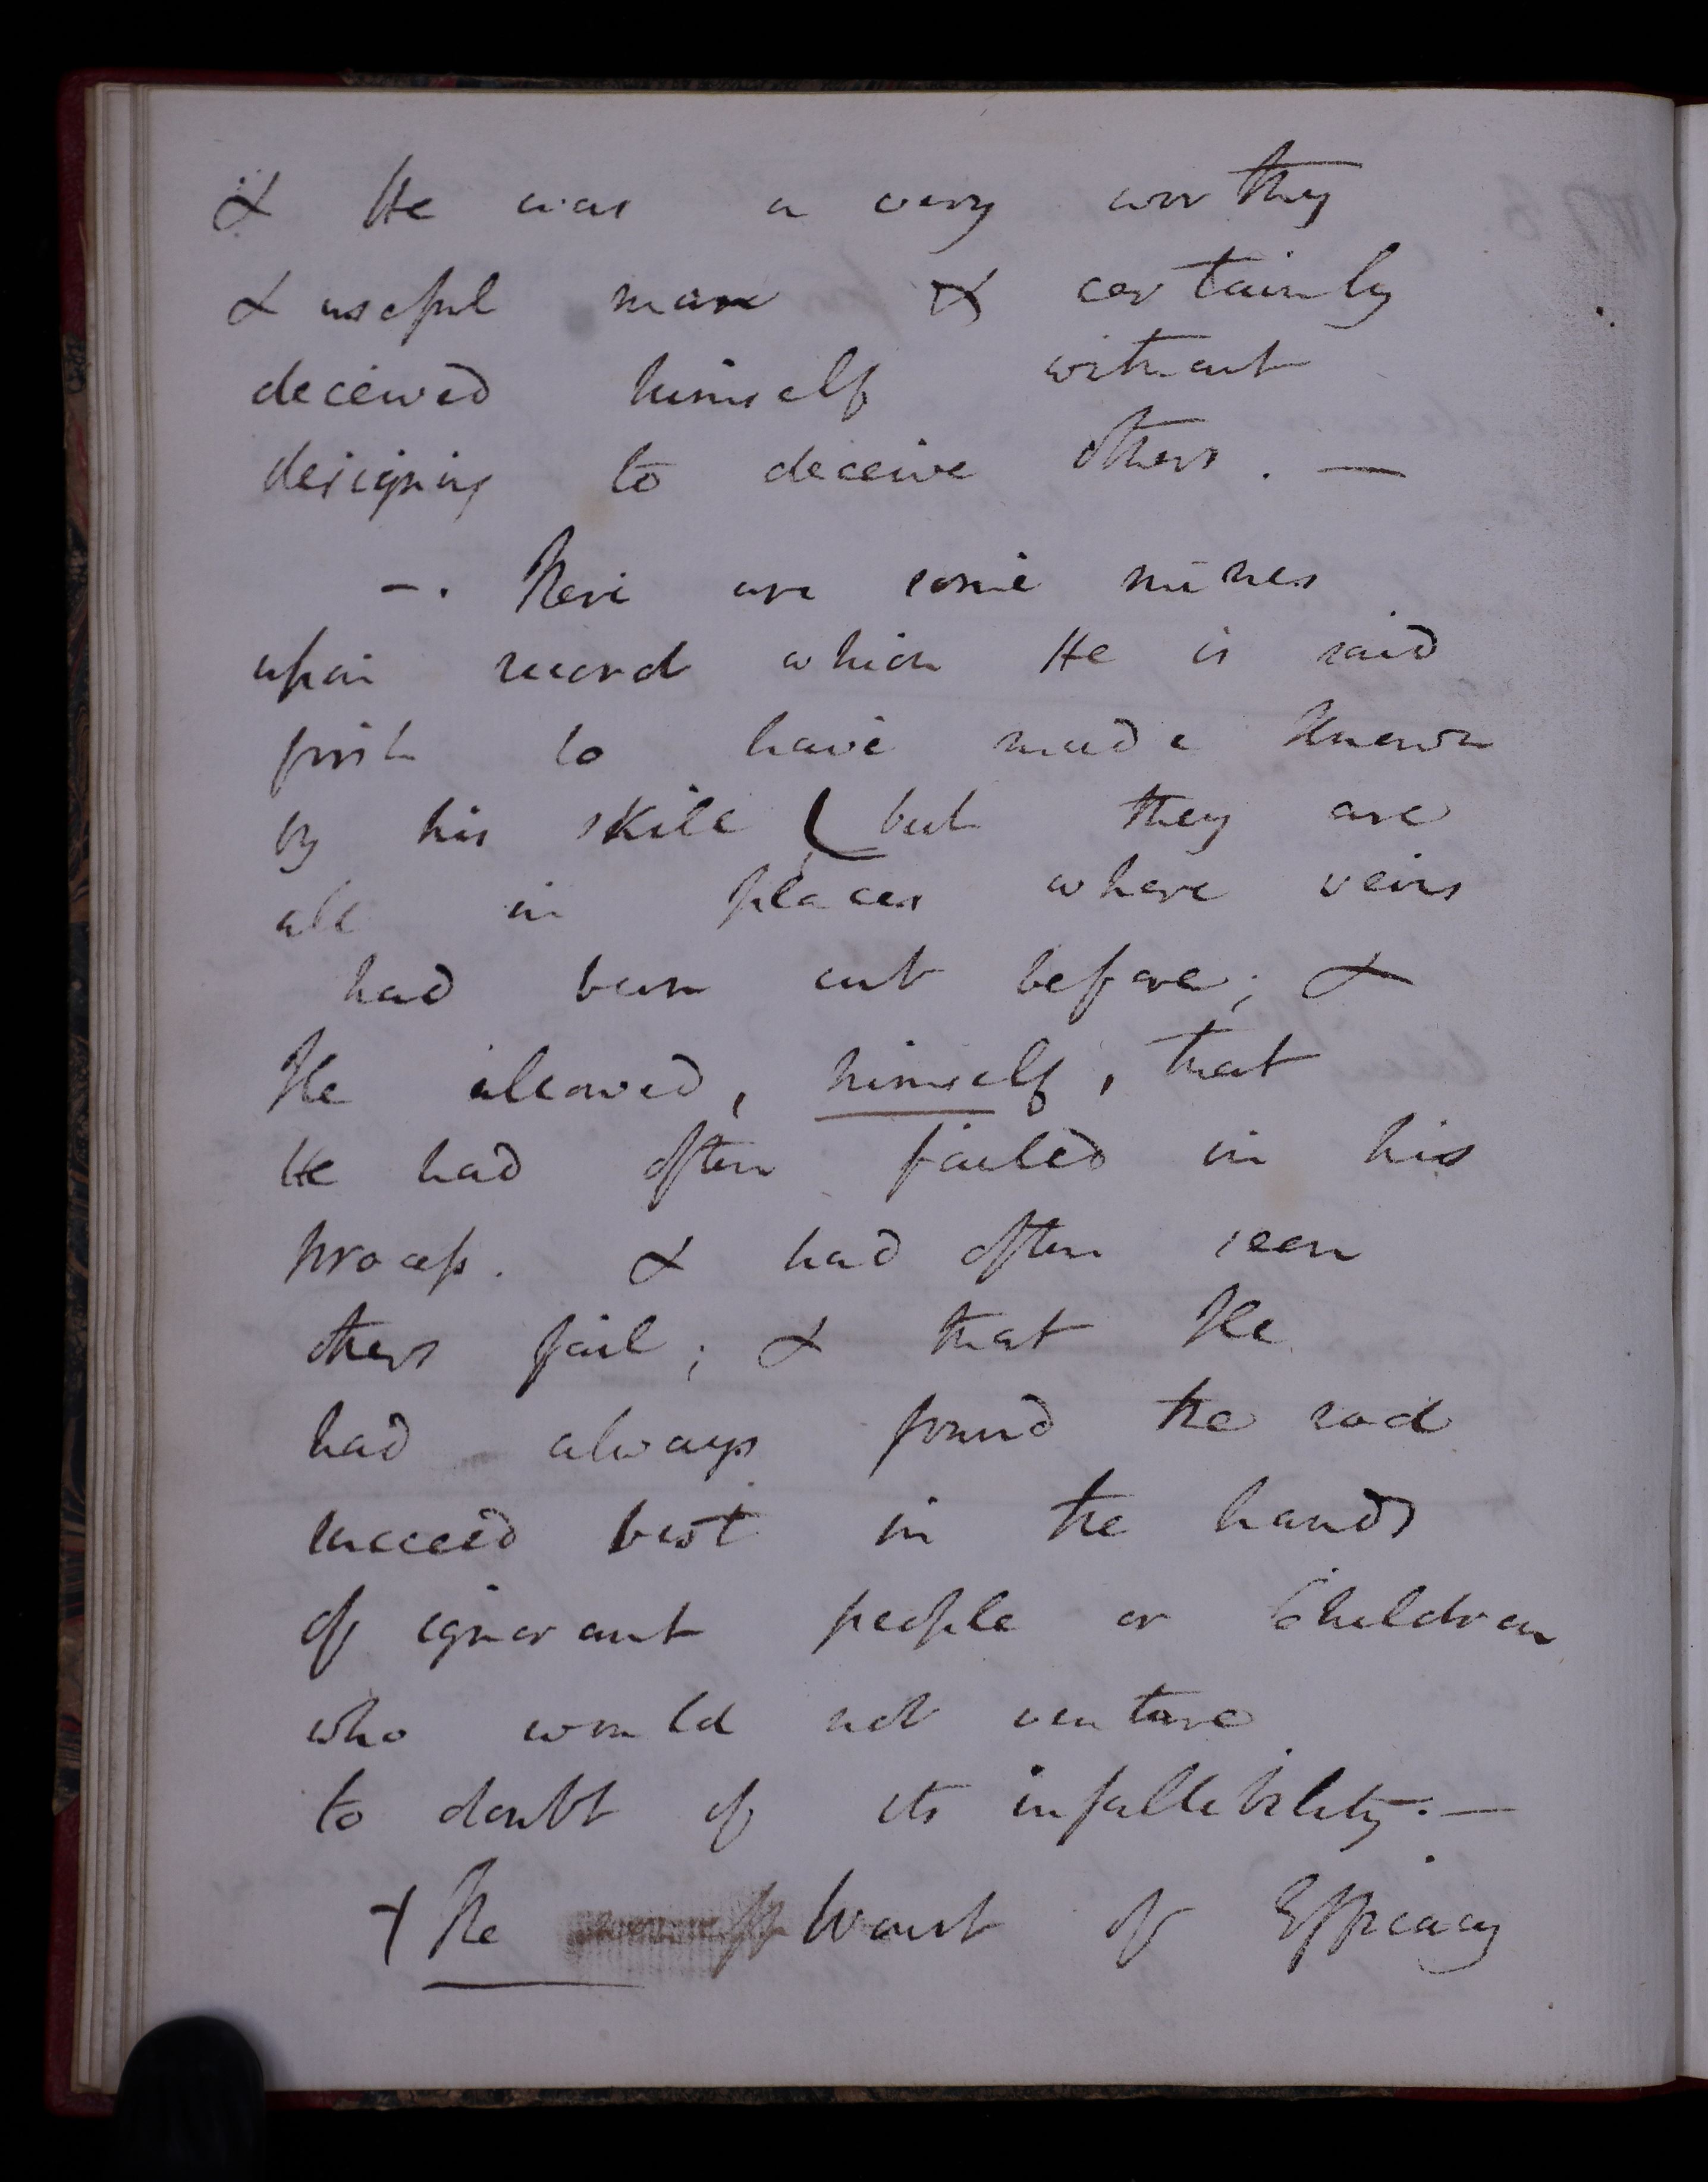 & He was a very worthy
& useful man & certainly
deceived himself without
designing to deceive others. —
—. There are some mines
upon record which He is said
first to have made known
by his skill (but they are
all in places where veins
had been cut before; &
He allowed, himself, that
He had often failed in his
process. & had often seen
others fail; & that He
had always found the rod
succeed best in the hands
of ignorant people or Children
who would not venture
to doubt of its infallibility. —
+ The Want of Efficacy